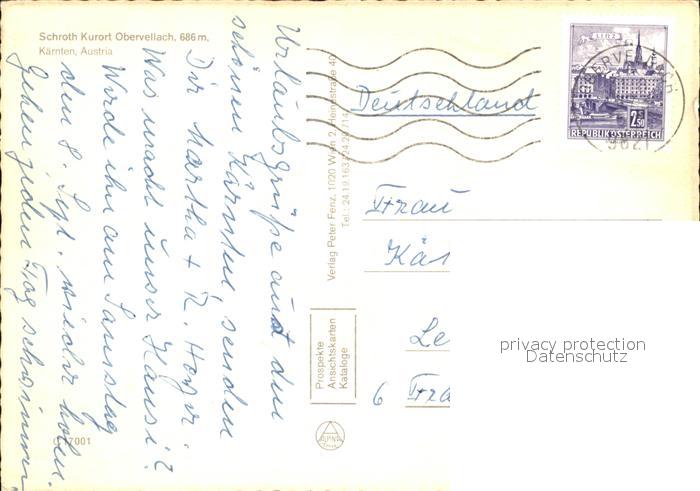 Schroth Kurort Obervellach, 686 m,
Kärnten, Austria
Urlaubsgrüße aus den
schönen Kärnten senden
Dir Martha + R.
Was macht unser Hansi?
Werde ihn am Samstag
den 8. Sept. wieder holen.
Gehen jeden Tag schwimmen
C 17001
Verlag Peter Fenz, 1020 Wien 2, Heinestraße 40
Tel.: 24 19 163
Prospekte
Ansichtskarten
Kataloge
ALPINA
LINZ
2.50
REPUBLIK ÖSTERREICH
OBERVELLACH
9821
Deutschland
Frau
Kät
Le
6 Fra
privacy protection
Datenschutz